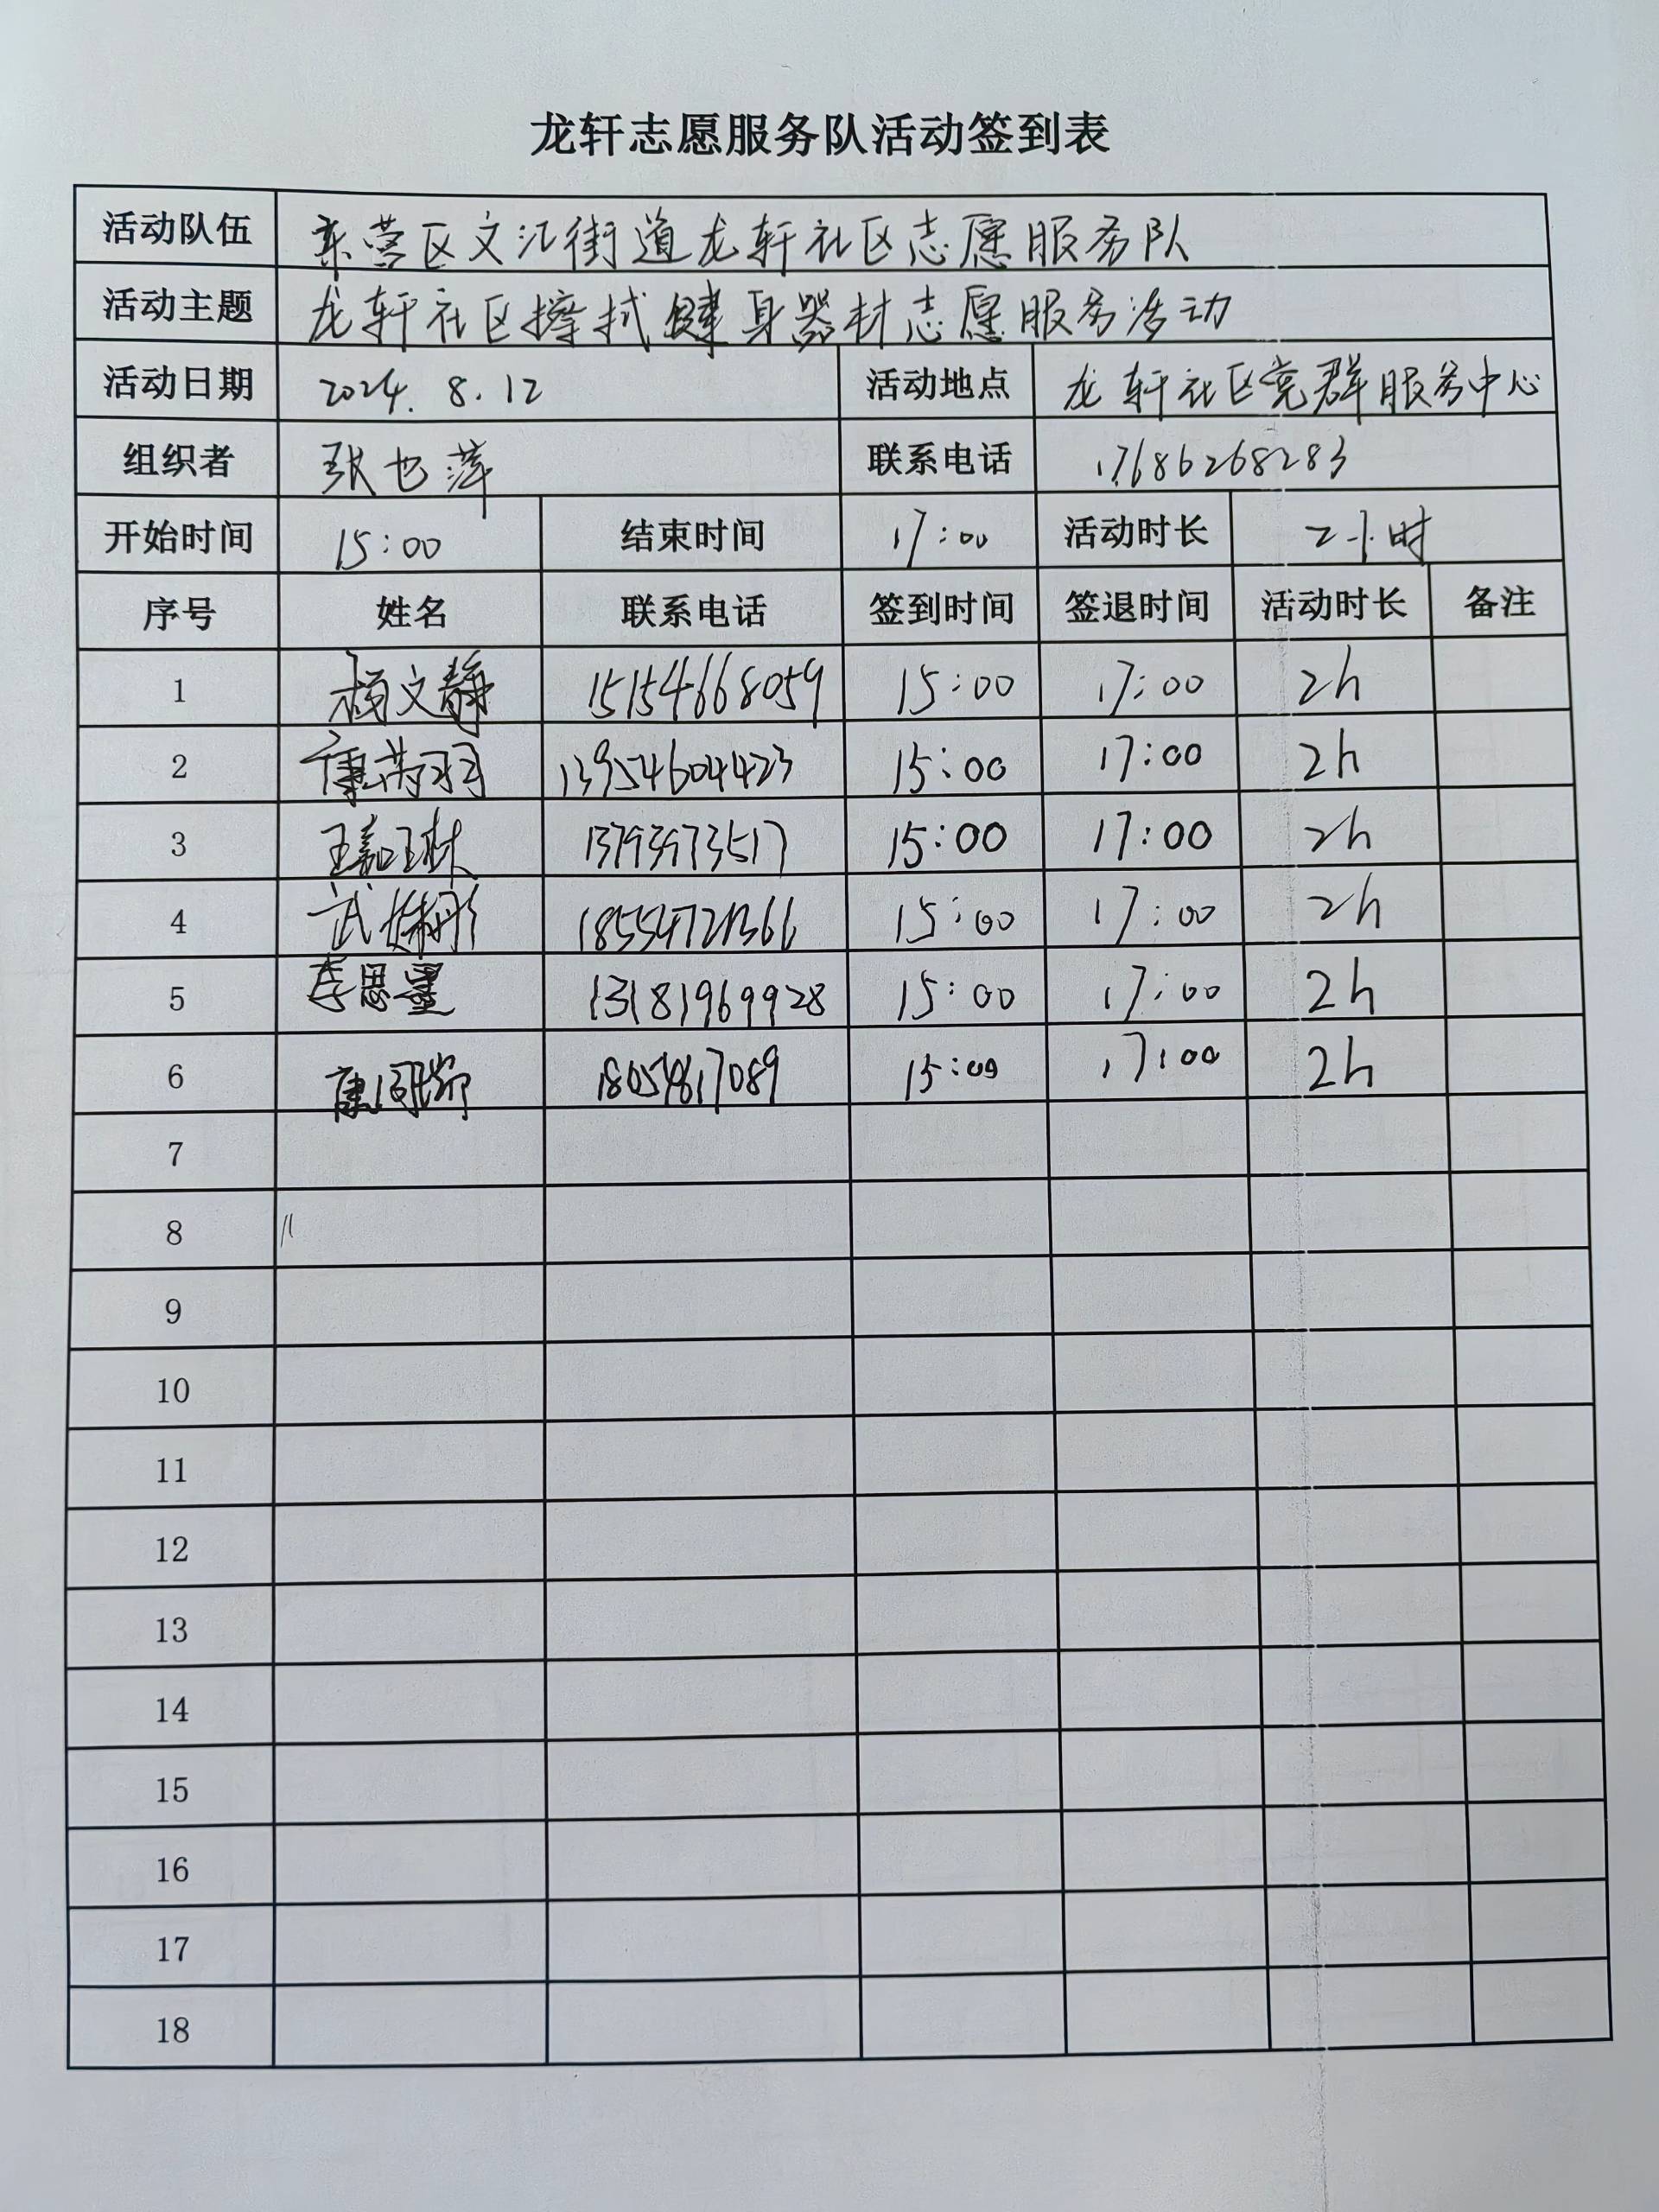 龙轩志愿服务队活动签到表
活动队伍 东营区文汇街道龙轩社区志愿服务队
活动主题 龙轩社区擦拭健身器材志愿服务活动
活动日期 2024.8.12 活动地点 龙轩社区党群服务中心
组织者 张也萍 联系电话 17686268283
开始时间 15:00 结束时间 17:00 活动时长 2小时
序号 姓名 联系电话 签到时间 签退时间 活动时长 备注
1 杨文静 15154668059 15:00 17:00 2h
2 13954604423 15:00 17:00 2h
3 王嘉琳 13793973517 15:00 17:00 2h
4 武姝彤 15:00 17:00 2h
5 李思墨 13181969928 15:00 17:00 2h
6 18054617089 15:00 17:00 2h
7
8
9
10
11
12
13
14
15
16
17
18